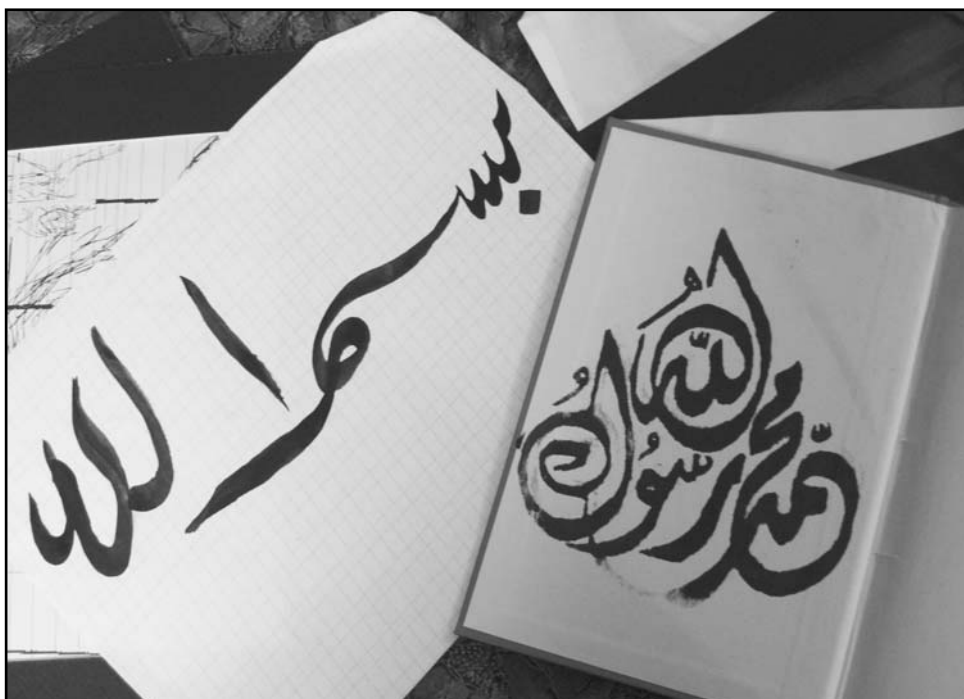 بسم الله
محمد رسول الله